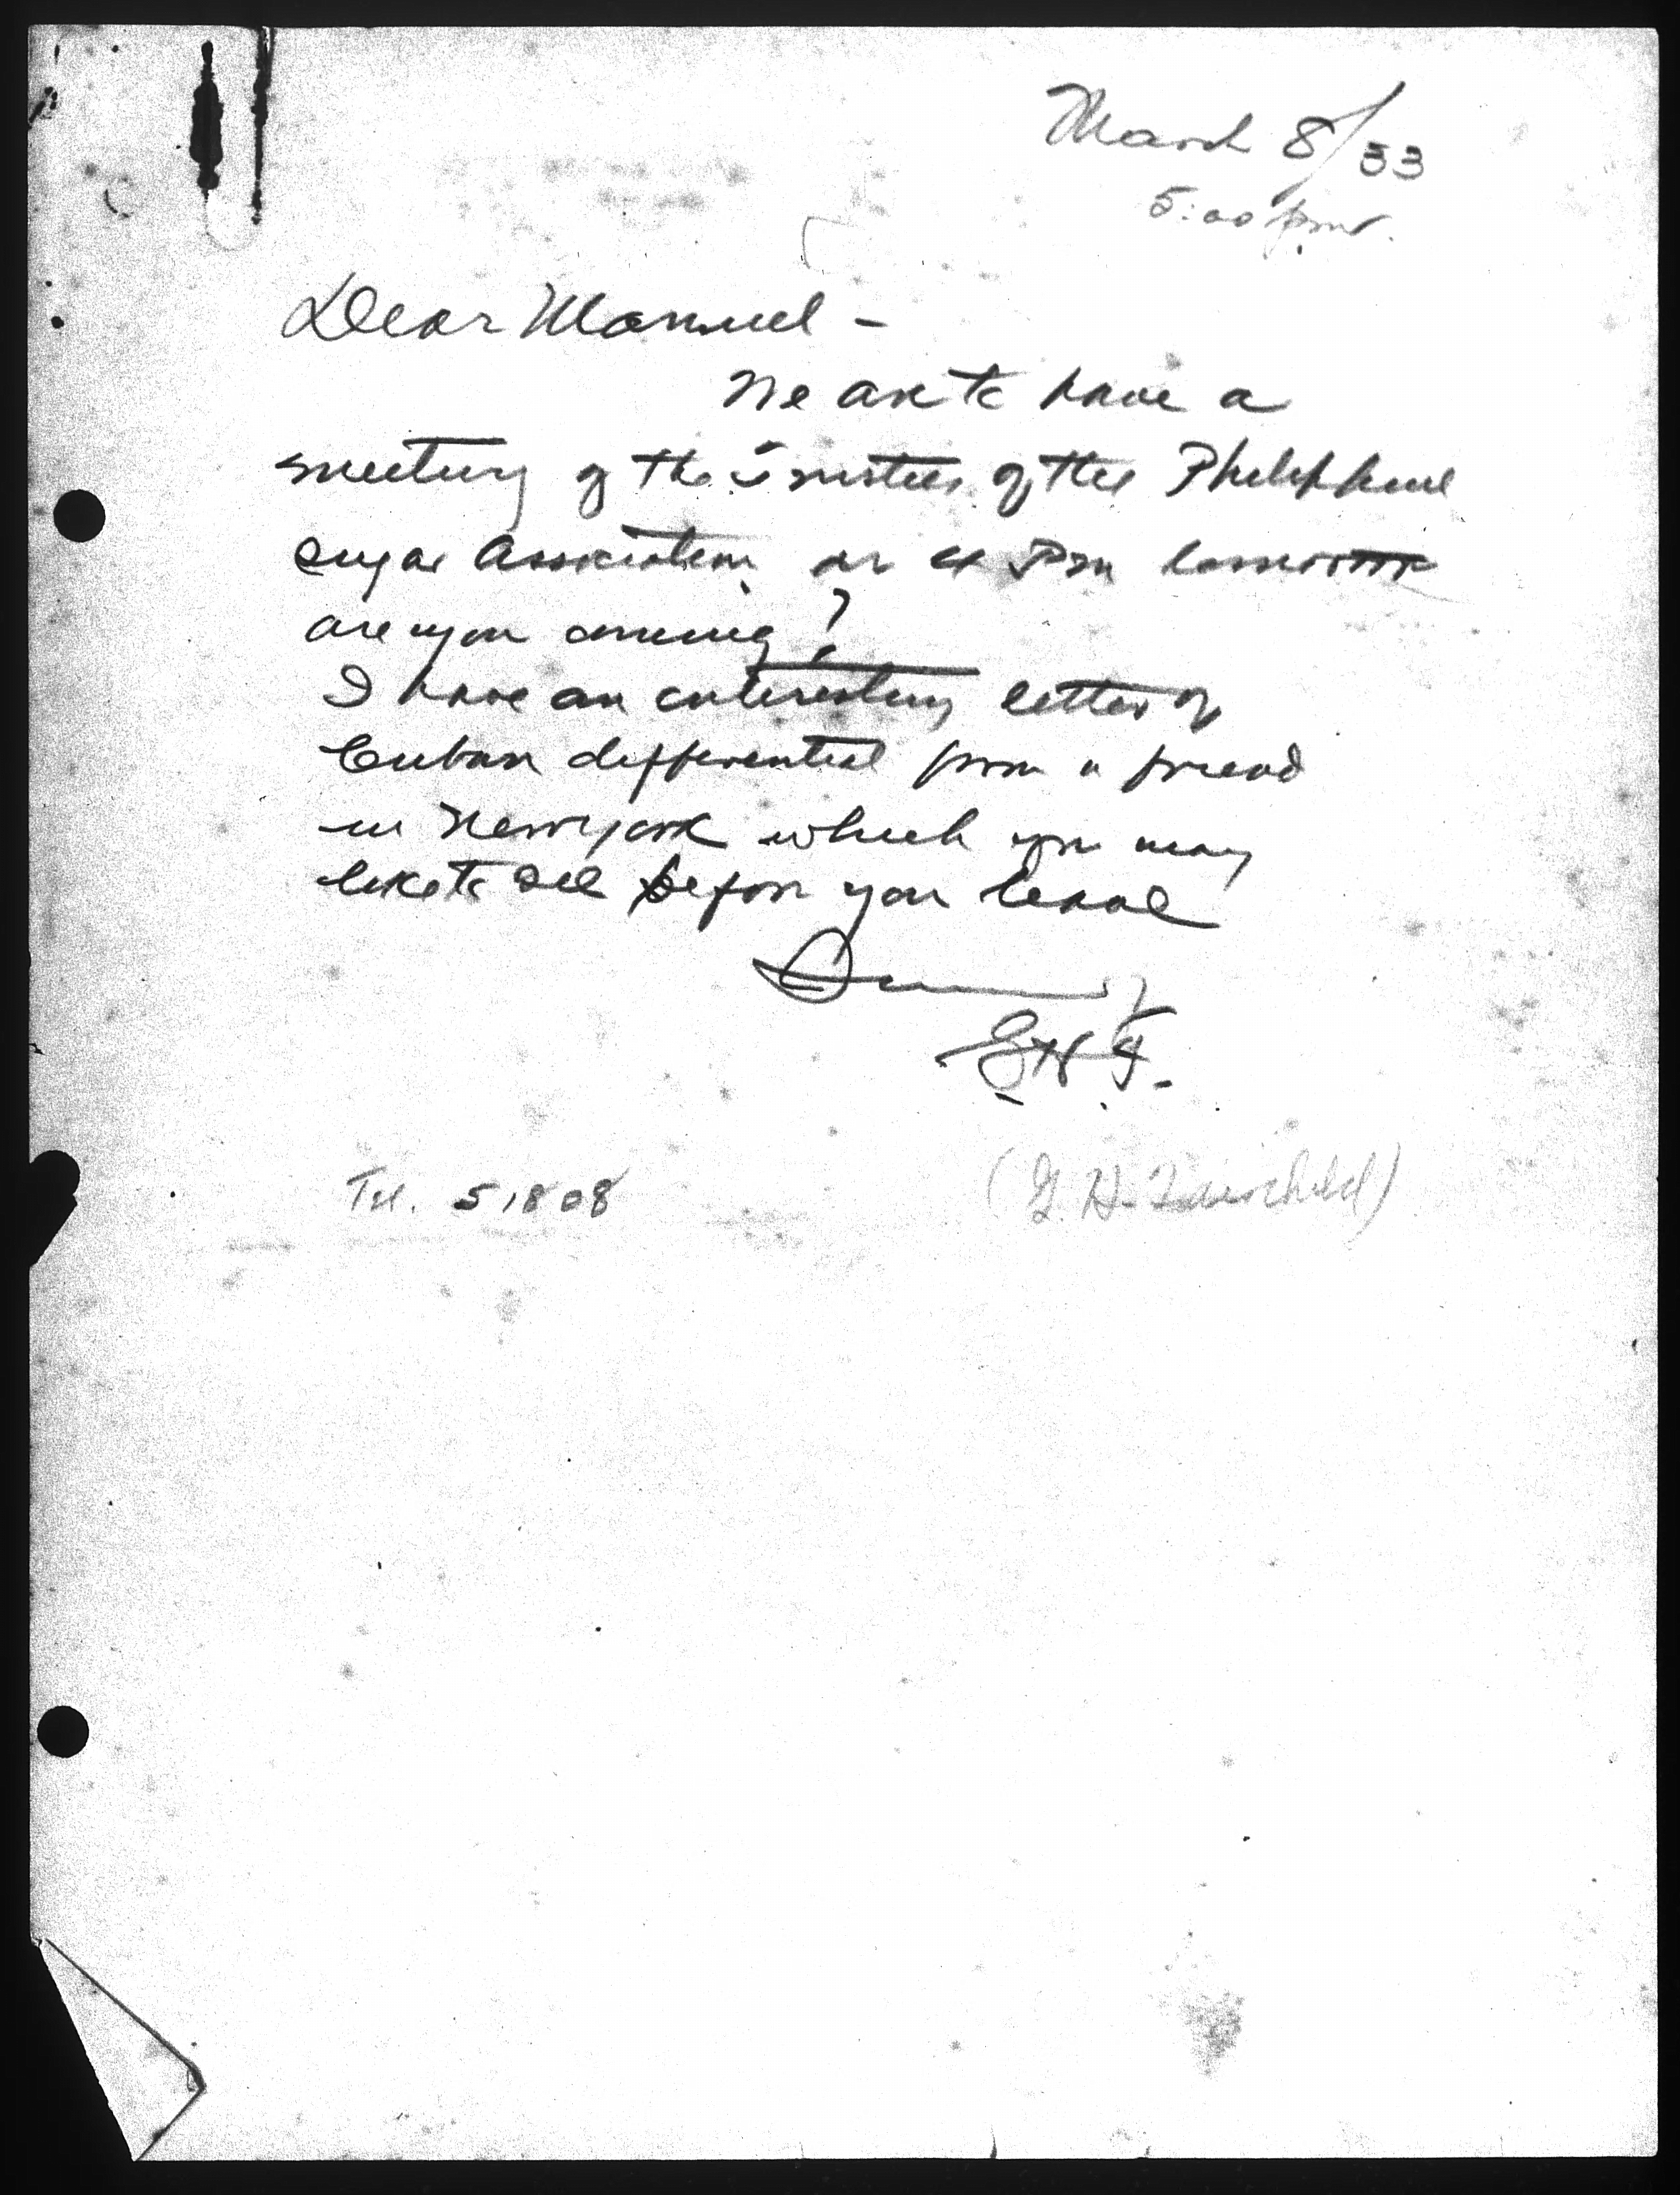 March 8/33
5:00 pm.
Dear Manuel -
We are to have a
meeting of the Trustees of the Philippine
Sugar Association at 4 Pm tomorrow
are you coming?
I have an interesting letter of
Cuban differential from a friend
in New York which you may
like to see before you leave
G H F.
Tel. 51808
(G. H. Fairchild)